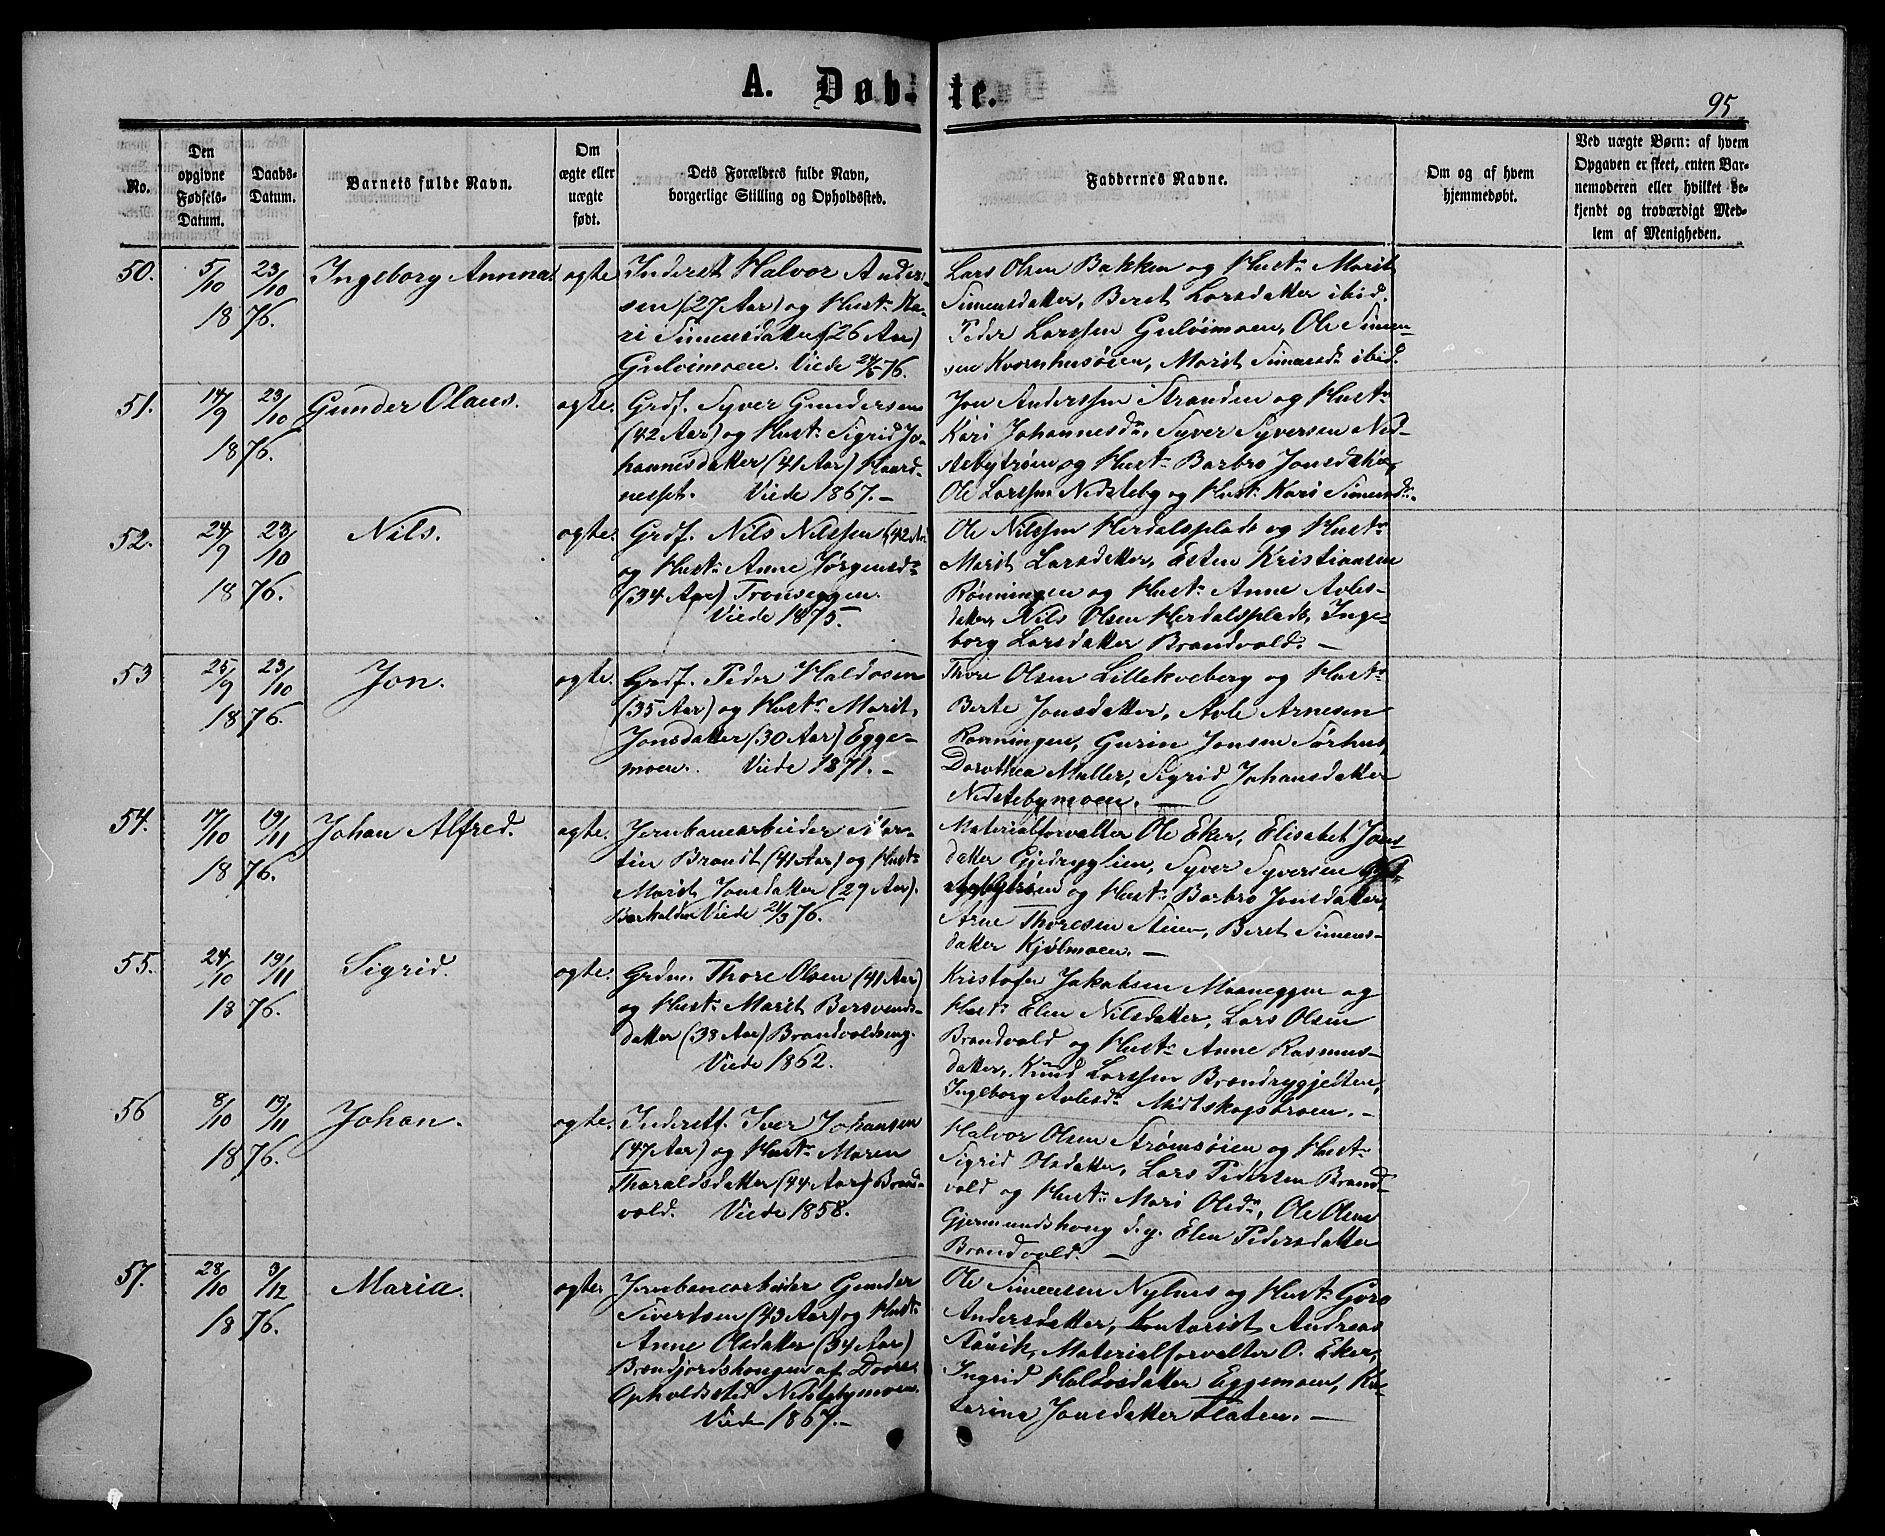 A. Døbte.
95
No.
Den opgivne Fødsels-Datum.
Daabs-Datum.
Barnets fulde Navn.
Om ægte eller uægte født.
Dets Forældres fulde Navn, borgerlige Stilling og Opholdssted.
Faddernes Navne.
Om og af hvem hjemmedøbt.
Ved uægte Børn: af hvem Opgaven er skeet, enten Barnemoderen eller hvilket bekjendt og troværdigt Medlem af Menigheden.
50. 5/10 23/10 1876. Ingeborg Annna ægte
Inderst Halvor Anders-
sen (27 Aar) og Hustr. Ma-
ri Simensdatter (26 Aar)
Gulvimoen. Viede 24/5 76.
Lars Olsen Bakken og Hustr. Marit
Simensdatter, Beret Larsdatter ibid.
Peder Larssen Gulvimoen, Ole Simen-
sen Kvernhusøien, Marit Simensdr. ibid.
51. 14/9 23/10 1876. Gunder Olaus. ægte.
Grdf. Syver Gundersen
(42 Aar) og Hust: Sigrid Jo-
hannesdatter (41 Aar) Haard-
nesset. Viede 1867. –
Jon Anderssen Stranden og Hustr.
Kari Johannesdr., Syver Syversen Ned-
stebytrøen og Hustr. Barbro Jonsdatter,
Ole Larssen Nedsteby og Hust. Kari Simensdr.
52. 24/9 23/10 1876. Nils. ægte.
Grdf. Nils Nilssen (42 Aar)
og Hustr. Anne Jørgensdr.
(34 Aar) Tronseggen.
Viede 1875.
Ole Nilssen Herdalsplads og Hustr.
Marit Larsdatter, Esten Kristiansen
Rønningen og Hustr. Anne Avles-
datter, Nils Olsen Herdalsplads, Inge-
borg Larsdatter Brandvold. –
53 25/9 23/10 1876. Jon. ægte.
Grdf. Peder Haldosen
(35 Aar) og Hustr. Marit
Jonsdatter (30 Aar) Egge-
moen. Viede 1871. –
Thore Olsen Lillekveberg og Hustr.
Berte Jonsdatter, Avle Arnesen
Rønningen, Gurin Jonsen Sørhus,
Dorothea Müller, Sigrid Johansdatter
Nedstebymoen. –
54. 17/10 19/11 1876. Johan Alfred. ægte.
Jernbanearbeider Mar-
tin Brandt (41 Aar) og Hustr.
Marit Jonsdatter (29 Aar).
Viede 21/3 76.
Materialforvalter Ole Eker, Elisabet Jons-
datter Gjedryglien, Syver Syversen
og Hustr. Barbro Jonsdatter,
Arne Thoresen Steien, Beret Simens-
datter Kjølmoen. –
55. 24/10 19/11 1876. Sigrid. ægte.
Grdm. Thore Olsen (41 Aar)
og Hustr. Marit Bersvends-
datter (38 Aar) Brandvoldseng.
Viede 1862.
Kristofer Jakobsen Moaneggen og
Hustr. Elen Nilsdatter, Lars Olsen
Brandvold og Hustr. Anne Rasmus-
datter, Knud Larssen Brandryggjelten,
Ingeborg Avlesdr. Midtskogsbroen. –
56 8/10 19/11 1876. Johan. ægte.
Inderstf. Iver Johansen
(47 Aar) og Hustr. Maren
Tharaldsdatter (44 Aar) Brand-
vold. Viede 1858.
Halvor Olsen Strømsøien og Hustr.
Sigrid Olsdatter, Lars Pedersen Brand-
vold og Hustr. Mari Olsdr., Ole Olsen
Gjermundshong d.y. Elen Pedersdatter
Brandvold. –
57. 28/10 3/12 1876. Maria. ægte.
Jernbanearbeider Gunder
Sivertsen (43 Aar) og Hustr.
Anne Olsdatter (34 Aar)
Brandjordshougen af Dovre.
Opholdssted Nedstebymoen.
Viede 1867. –
Ole Simensen Nylnes og Hustr. Guro
Andersdatter, Kontorist Andreas
Stavik, Materialforvalter O. Eker,
Ingrid Haldosdatter Eggemoen, Ka-
tarina Jonsdatter Flaten. –